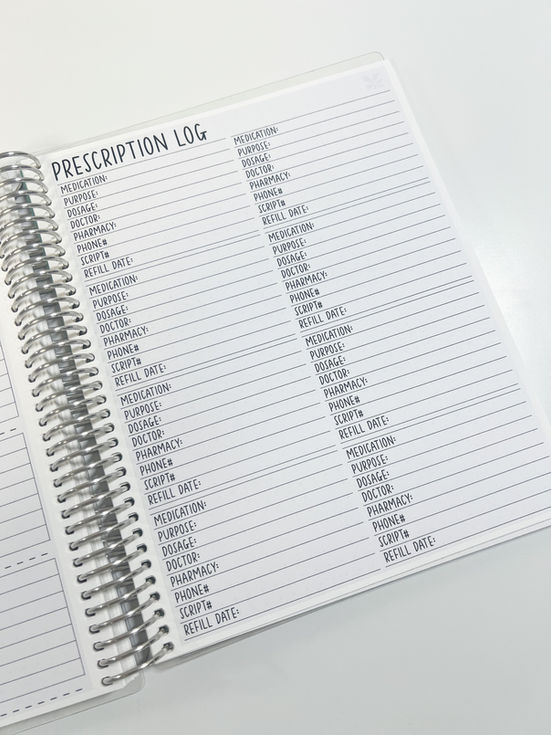 PRESCRIPTION LOG
MEDICATION:
PURPOSE:
DOSAGE:
DOCTOR:
PHARMACY:
PHONE#
SCRIPT#
REFILL DATE:
MEDICATION:
PURPOSE:
DOSAGE:
DOCTOR:
PHARMACY:
PHONE#
SCRIPT#
REFILL DATE:
MEDICATION:
PURPOSE:
DOSAGE:
DOCTOR:
PHARMACY:
PHONE#
SCRIPT#
REFILL DATE:
MEDICATION:
PURPOSE:
DOSAGE:
DOCTOR:
PHARMACY:
PHONE#
SCRIPT#
REFILL DATE:
MEDICATION:
PURPOSE:
DOSAGE:
DOCTOR:
PHARMACY:
PHONE#
SCRIPT#
REFILL DATE:
MEDICATION:
PURPOSE:
DOSAGE:
DOCTOR:
PHARMACY:
PHONE#
SCRIPT#
REFILL DATE:
MEDICATION:
PURPOSE:
DOSAGE:
DOCTOR:
PHARMACY:
PHONE#
SCRIPT#
REFILL DATE:
MEDICATION:
PURPOSE:
DOSAGE:
DOCTOR:
PHARMACY:
PHONE#
SCRIPT#
REFILL DATE: